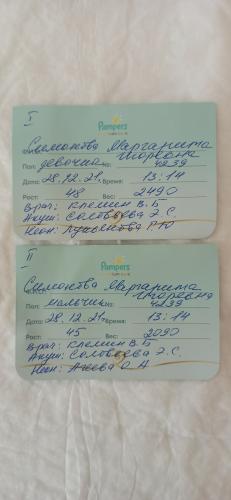 I
Pampers
Маргарита
Игоревна
Пол: девочка №: 4239
Дата: 28.12.21, Время: 13:14
Рост: 48 Вес: 2490
Врач: Клемин В.Б
Акуш: Соловьева Э.С.
Неон:
II
Pampers
Маргарита
Игоревна
Пол: мальчик №: 4239
Дата: 28.12.21, Время: 13:14
Рост: 45 Вес: 2090
Врач: Клемин В.Б
Акуш: Соловьева Э.С.
Неон: О.А